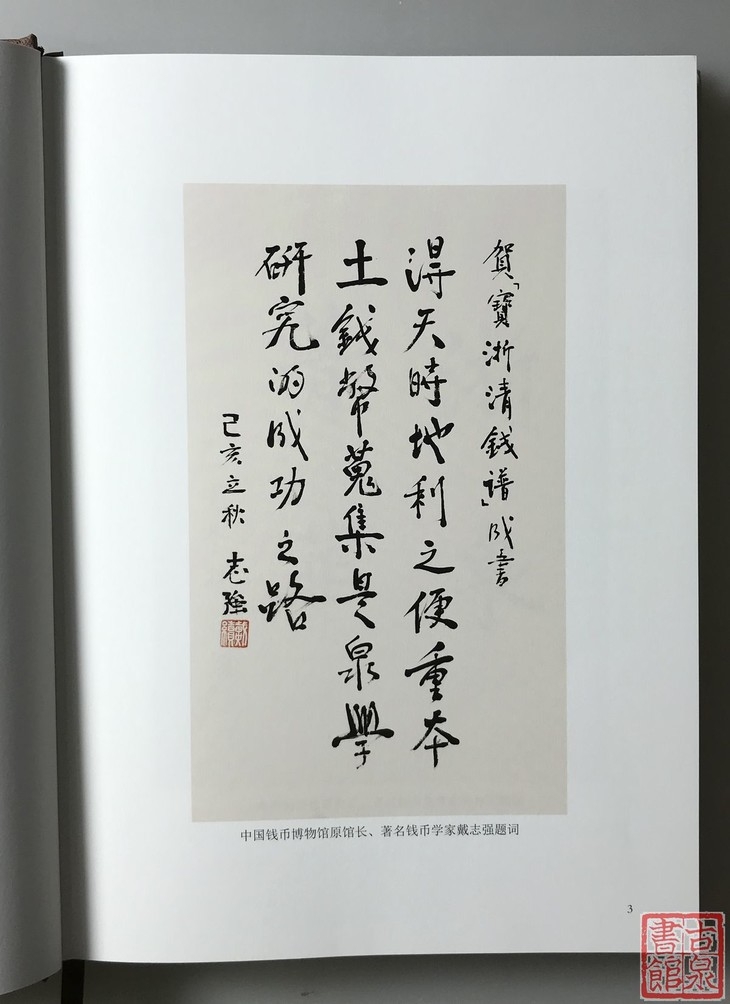 賀「寶浙清錢譜」成書
得天時地利之便重本
土錢幣蒐集是泉學
研究的成功之路
己亥立秋 志強
中国钱币博物馆原馆长、著名钱币学家戴志强题词
3
古泉書館